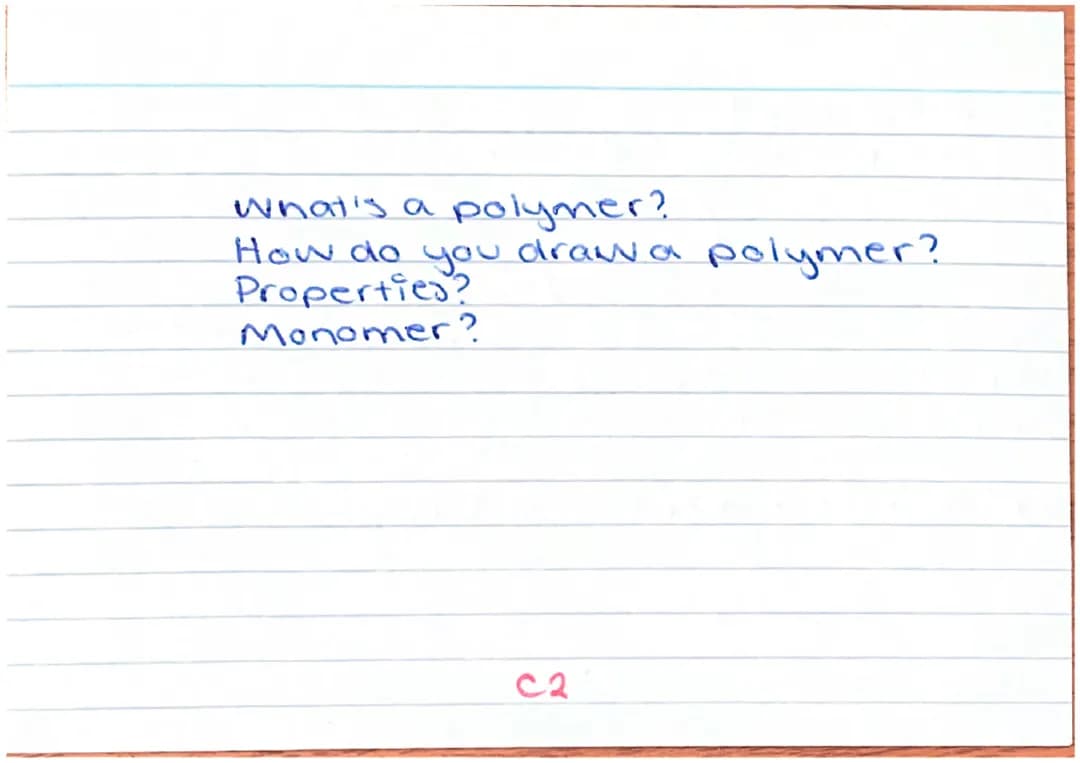 What's a polymer?
How do you draw a polymer?
Properties?
Monomer?
C2